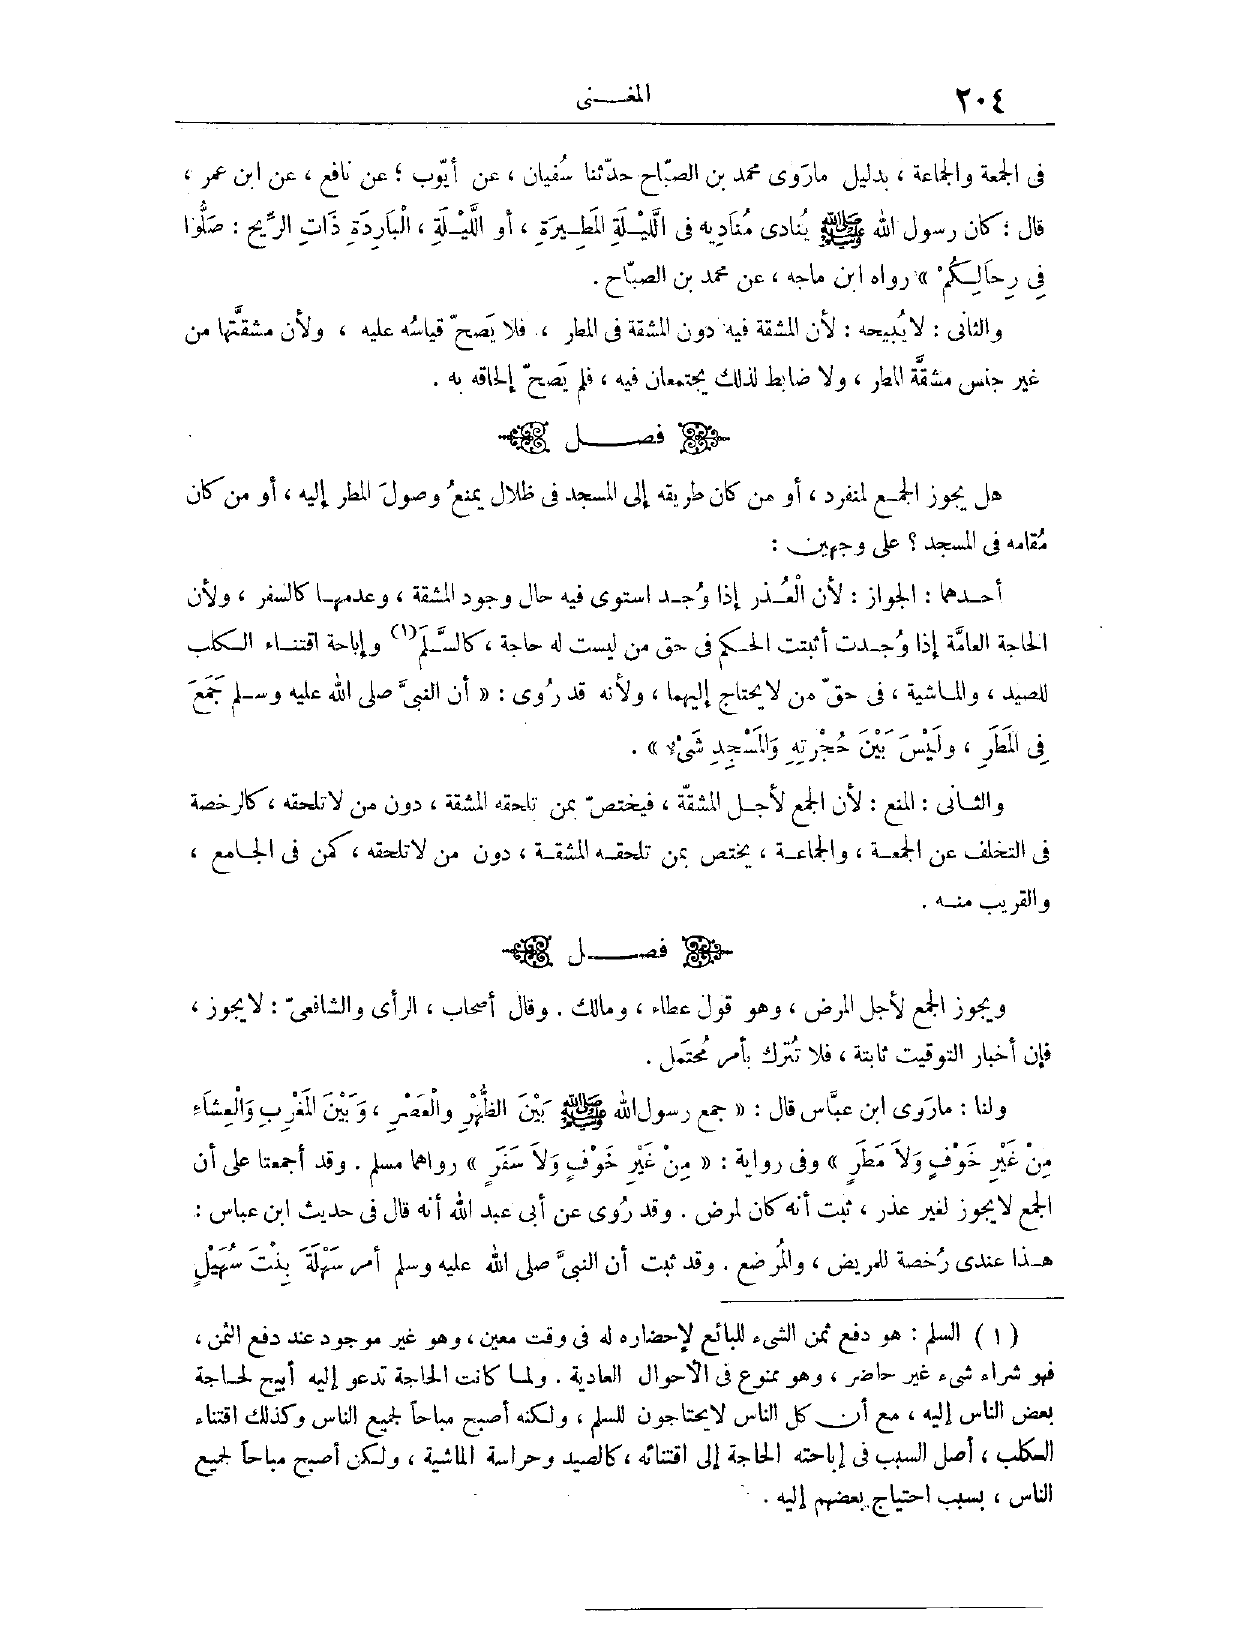 ٢٠٤
المغـــنى
فى الجمعة والجماعة ، بدليل مارَوى محمد بن الصبّاح حدّثنا سُفيان ، عن أيّوب ؛ عن نافع ، عن ابن عمر ،
قال : كان رسول الله ﷺ يُنادى مُنَادِيه فى اللَّيْـلَةِ المَطِـيرَةِ ، أو اللَّيْـلَةِ ، الْبَارِدَةِ ذَاتِ الرِّيحِ : صَلُّوا
فِى رِحَالِكُمْ » رواه ابن ماجه ، عن محمد بن الصبّاح .
والثانى : لايُبيحه : لأن المشقة فيه دون المشقة فى المطر ، فلا يَصحّ قياسُه عليه ، ولأن مشقَّتها من
غير جنس مشقَّة المطر ، ولا ضابط لذلك يجتمعان فيه ، فلم يَصحّ إلحاقه به .
فصــــل
هل يجوز الجمـع لمنفرد ، أو من كان طريقه إلى المسجد فى ظلال يمنعُ وصولَ المطر إليه ، أو من كان
مُقامه فى المسجد ؟ على وجهين :
أحـدها : الجواز : لأن الْعُـذر إذا وُجـد استوى فيه حال وجود المشقة ، وعدمهـا كالسفر ، ولأن
الحاجة العامَّة إذا وُجـدت أثبتت الحـكم فى حق من ليست له حاجة ، كالسَّـلَم(١) وإباحة اقتنـاء الـكلب
للصيد ، والماشية ، فى حقّ من لايحتاج إليهما ، ولأنه قد رُوى : « أن النبىَّ صلى الله عليه وسـلم جَمَعَ
فِى المَطَرِ ، ولَيْسَ بَيْنَ حُجْرتِهِ وَالمَسْجِدِ شَىْءٌ » .
والثـانى : المنع : لأن الجمع لأجـل المشقّة ، فيختصّ بمن تلحقه المشقة ، دون من لاتلحقه ، كالرخصة
فى التخلف عن الجمعـة ، والجماعـة ، يختص بمن تلحقـه المشقـة ، دون من لاتلحقه ، كمن فى الجـامع ،
والقريب منـه .
فصــــل
ويجوز الجمع لأجل المرض ، وهو قول عطاء ، ومالك . وقال أصحاب ، الرأى والشافعىّ : لايجوز ،
فإن أخبار التوقيت ثابتة ، فلا تُتْرك بأمر مُحتَمل .
ولنا : مارَوى ابن عبَّاس قال : « جمع رسول الله ﷺ بَيْنَ الظُّهْرِ والْعَصْرِ ، وَبَيْنَ المَغْرِبِ وَالْعِشَاءِ
مِنْ غَيْرِ خَوْفٍ وَلاَ مَطَرٍ » وفى رواية : « مِنْ غَيْرِ خَوْفٍ وَلاَ سَفَرٍ » رواهما مسلم . وقد أجمعتا على أن
الجمع لايجوز لغير عذر ، ثبت أنه كان لمرض . وقد رُوى عن أبى عبد الله أنه قال فى حديث ابن عباس :
هـذا عندى رُخصة للمريض ، والمُرضع . وقد ثبت أن النبىَّ صلى الله عليه وسلم أمر سَهْلَةَ بِنْتَ سُهَيْلٍ
( ١ ) السلم : هو دفع ثمن الشىء للبائع لإحضاره له فى وقت معين ، وهو غير موجود عند دفع الثمن ،
فهو شراء شىء غير حاضر ، وهو ممنوع فى الأحوال العادية . ولما كانت الحاجة تدعو إليه أبيح لحـاجة
بعض الناس إليه ، مع أن كل الناس لايحتاجون للسلم ، ولكنه أصبح مباحاً لجميع الناس وكذلك اقتناء
الكلب ، أصل السبب فى إباحته الحاجة إلى اقتنائه ، كالصيد وحراسة الماشية ، ولكن أصبح مباحاً لجميع
الناس ، بسبب احتياج بعضهم إليه .